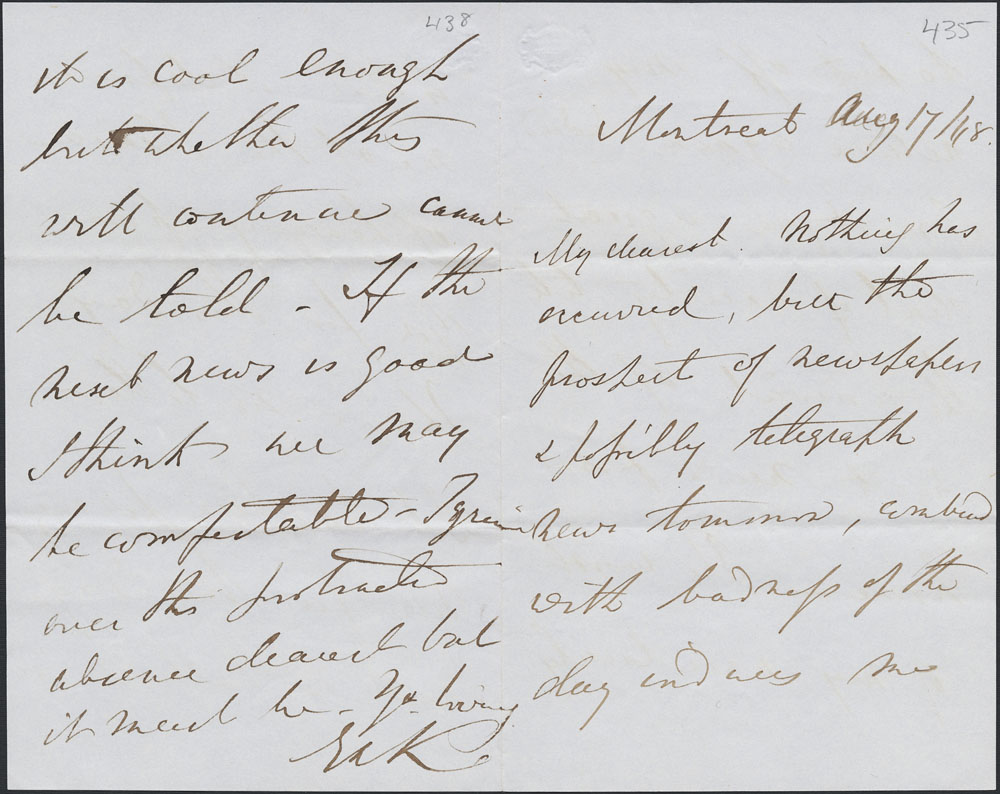 435
Montreal Aug 17/48.
My dearest. Nothing has
occurred, but the
prospect of newspapers
& possibly telegraph
news tomorrow, combined
with badness of the
day induces me
438
it is cool enough
but whether this
will continue cannot
be told - If the
next news is good
I think we may
be comfortable - I grieve
over this protracted
absence dearest but
it must be - Yr loving